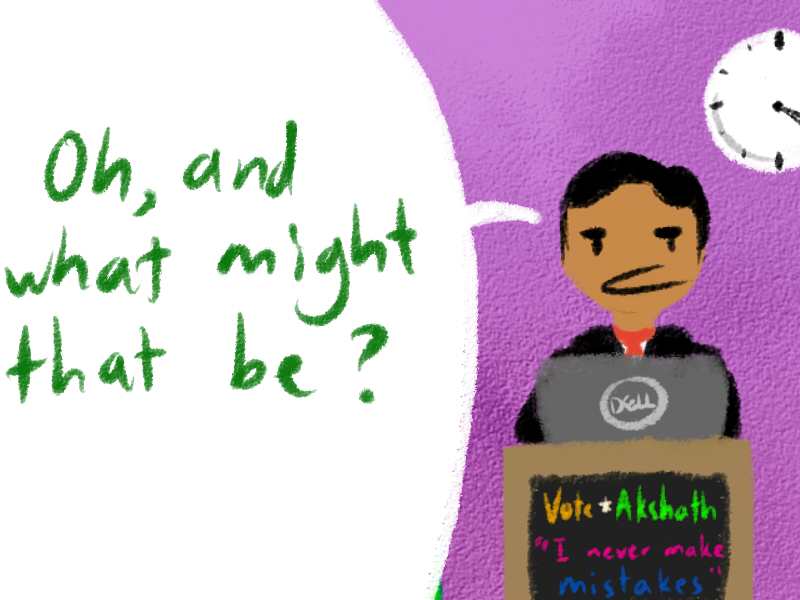 Oh, and
what might
that be?
DELL
Vote * Akshath
"I never make
mistakes"